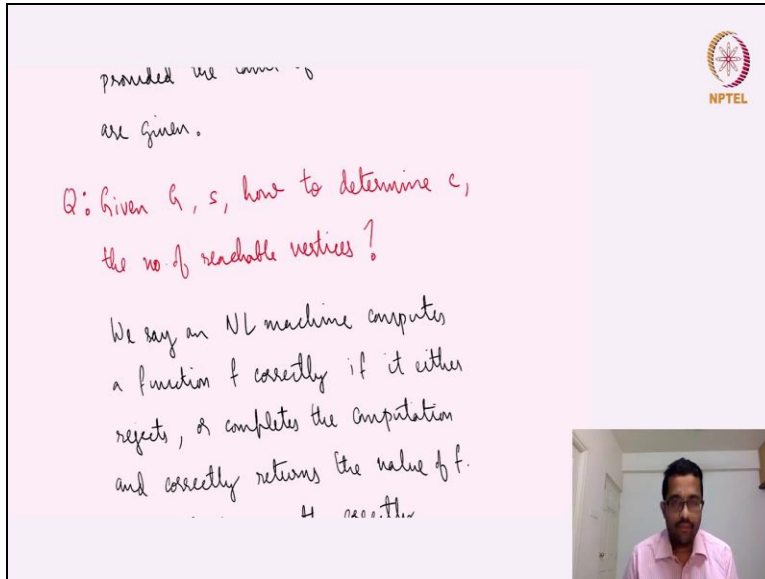 provided the
are given.
Q: Given G, s, how to determine c,
the no. of reachable vertices?
We say an NL machine computes
a function f correctly if it either
rejects, or completes the computation
and correctly returns the value of f.
NPTEL